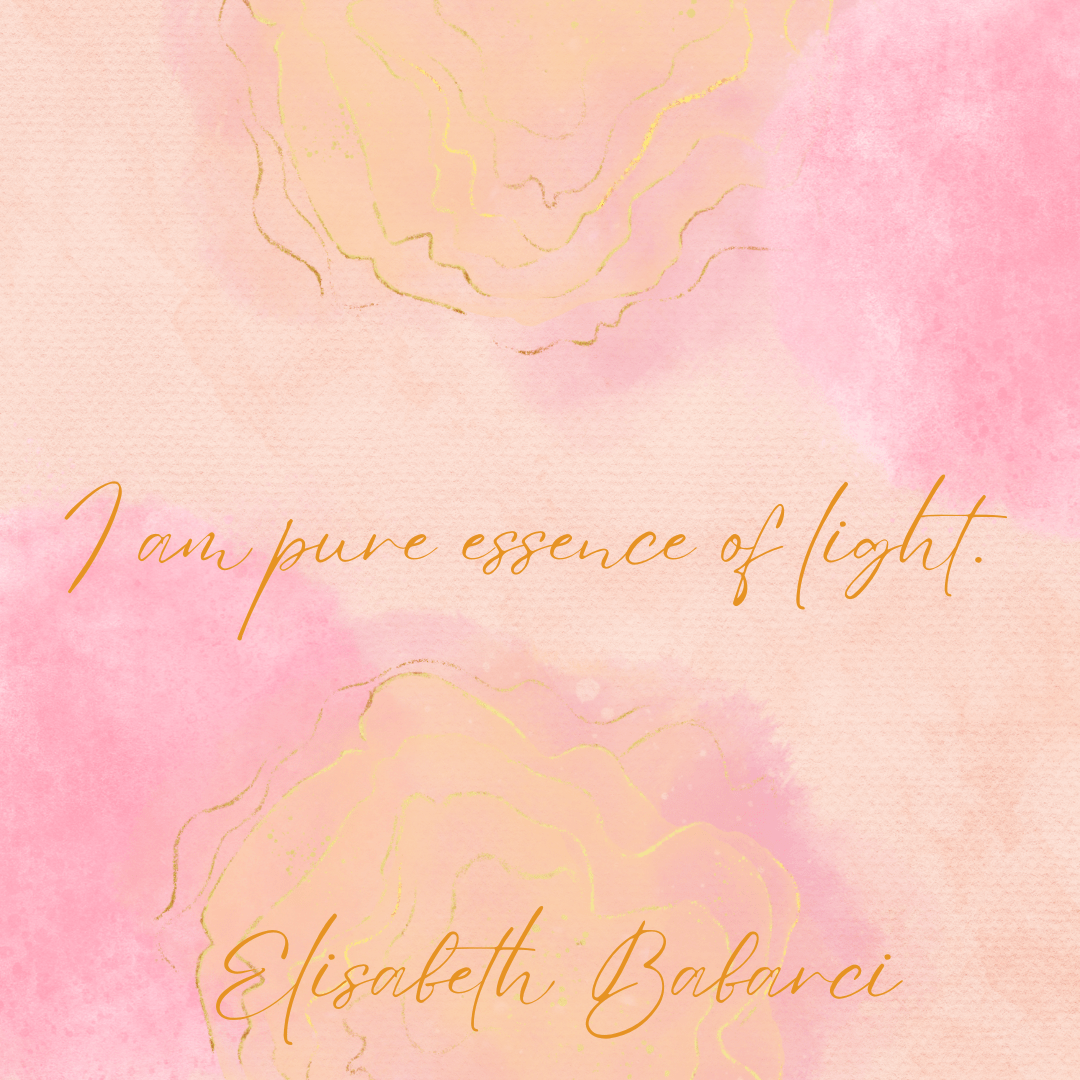 I am pure essence of light.
Elisabeth Babarci